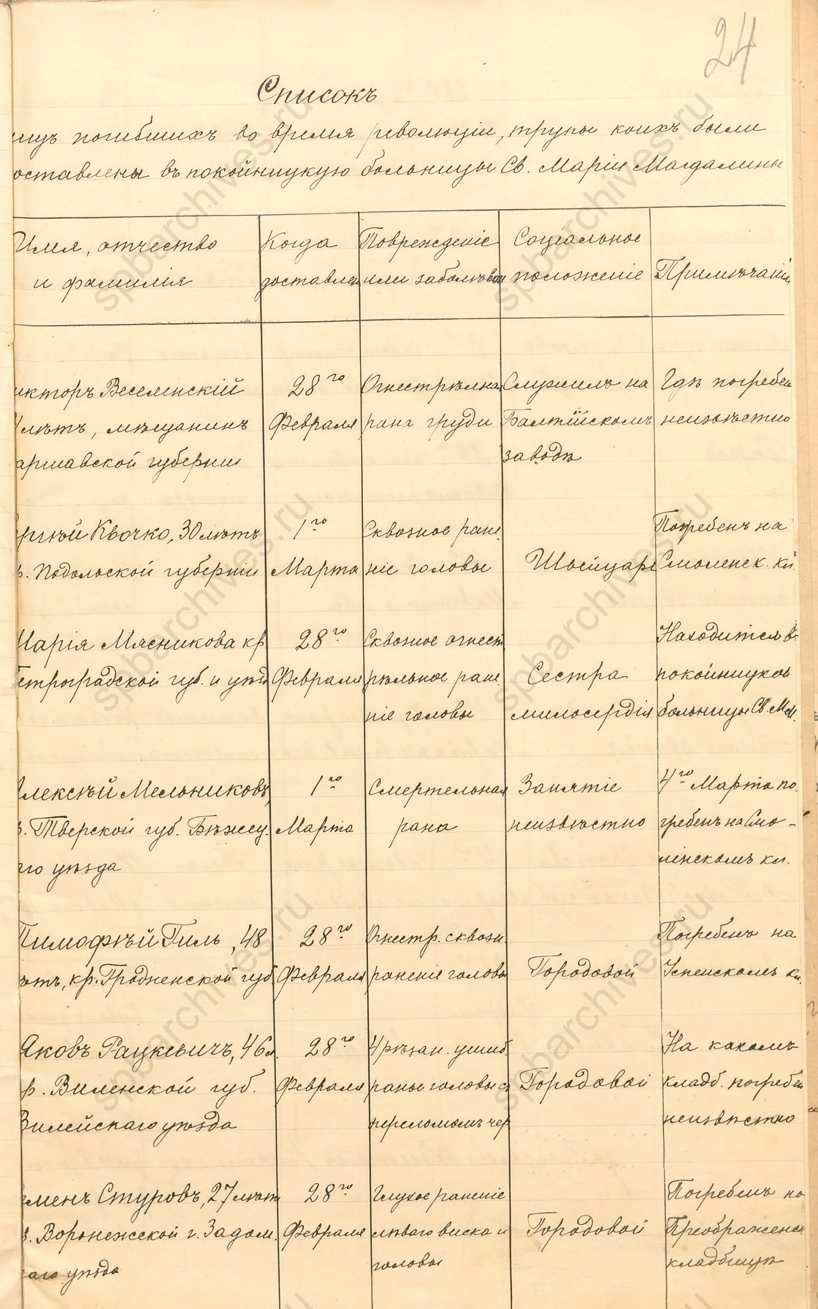 24
Списокъ
лицъ погибшихъ во время революціи, трупы коихъ были
доставлены въ покойницкую больницы Св. Маріи Магдалины
Имя, отчество
и фамилія
Когда
доставлен
Поврежденіе
или заболѣван
Соціальное
положеніе
Примѣчаніе
икторъ Веселенскій
лѣтъ, мѣщанинъ
аршавской губерніи
28го
Февраля
Огнестрѣльна
рана груди
Служилъ на
Балтійскомъ
заводѣ
Гдѣ погребен
неизвѣстно
ргѣй Квочко, 30 лѣтъ
Подольской губерніи
1го
Марта
Сквозное ране
ніе головы
Швейцаръ
Погребенъ на
Смоленск. кл.
Марія Мясникова кр.
етроградской губ. и уѣзд
28го
Февраля
Сквозное огнест
рѣльное ране
ніе головы
Сестра
милосердія
Находится въ
покойницкой
больницы Св. М.М.
лексѣй Мельниковъ,
Тверской губ. Бѣжец.
го уѣзда
1го
Марта
Смертельная
рана
Занятіе
неизвѣстно
4го Марта по.
гребенъ на Смо-
ленскомъ кл.
Тимофѣй Гиль, 48
ѣтъ, кр. Гродненской губ.
28го
Февраля
Огнестр. сквозн.
раненіе головы
Городовой
Погребенъ на
Успенскомъ кл.
Яковъ Рацкевичъ, 46 л.
р. Виленской губ.
Вилейскаго уѣзда
28го
Февраля
4 рѣзан. ушиб.
раны головы съ
переломомъ чер
Городовой
На какомъ
кладб. погребен
неизвѣстно
еменъ Стуровъ, 27 лѣтъ
Воронежской г. Задон.
аго уѣзда
28го
Февраля
Глухое раненіе
лѣваго виска и
головы
Городовой
Погребенъ на
Преображенск
кладбищѣ
spbarchives.ru
spbarchives.ru
spbarchives.ru
spbarchives.ru
spbarchives.ru
spbarchives.ru